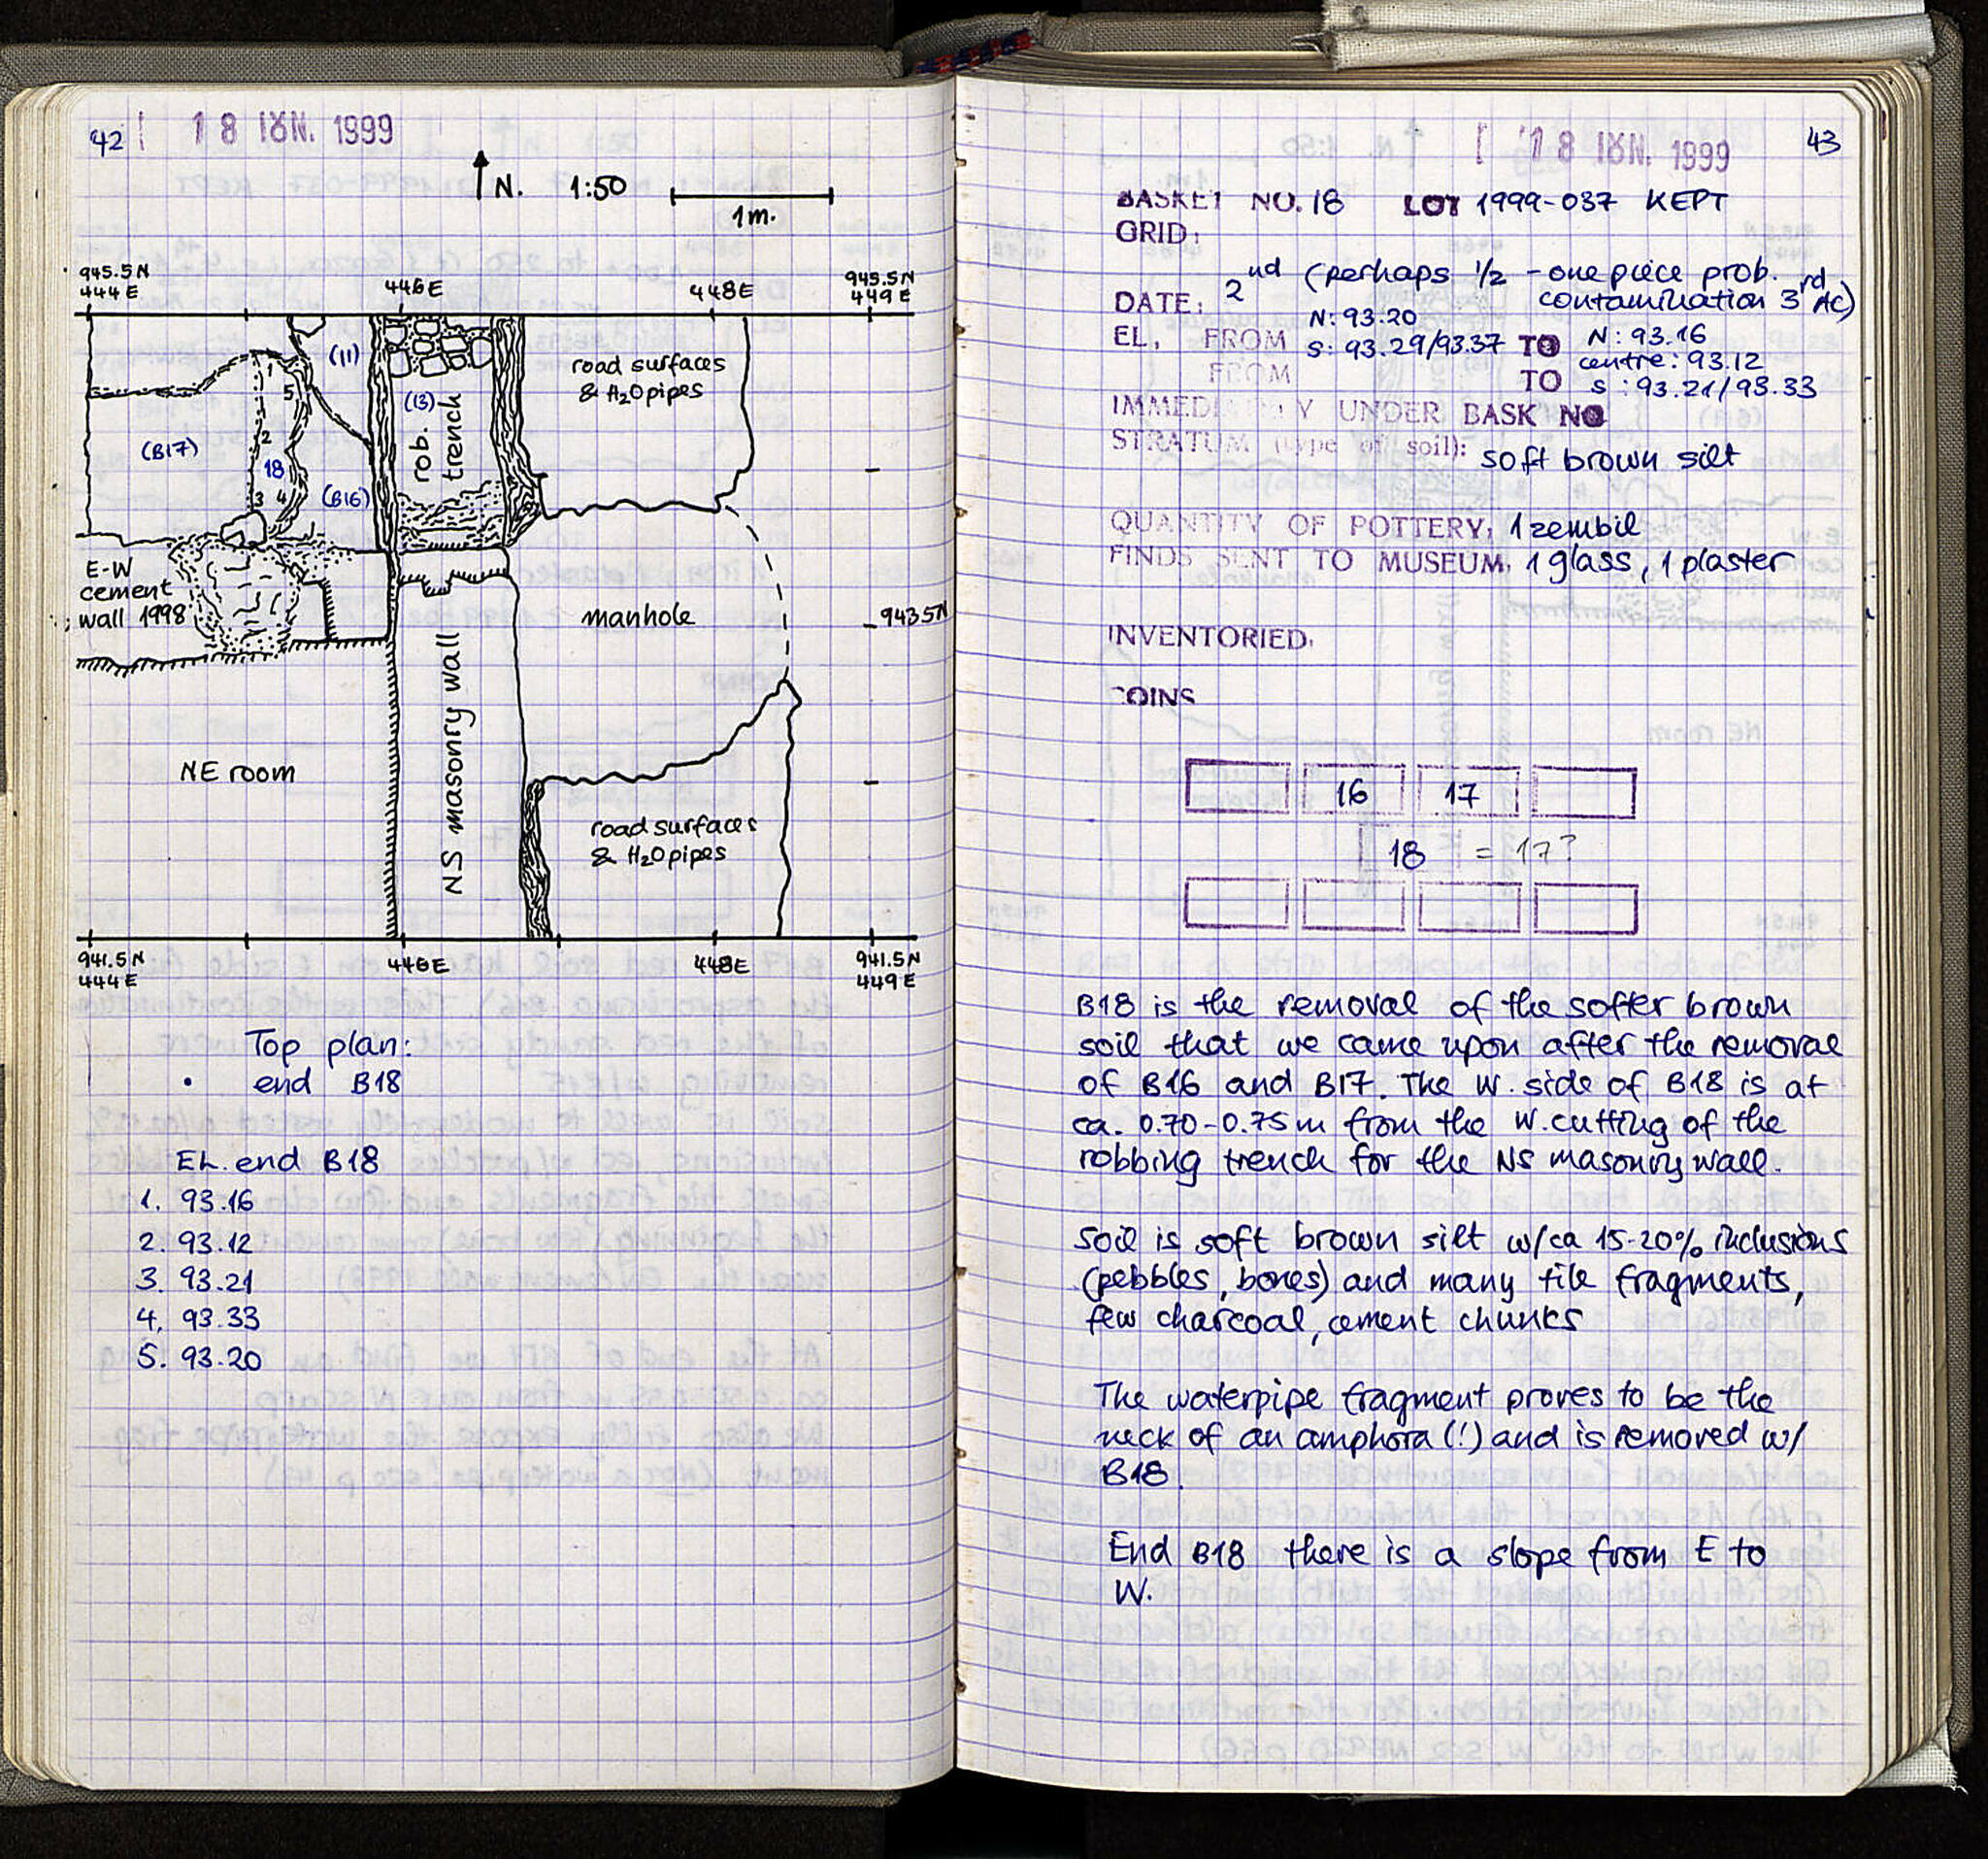 42
18 ΙΟΥΝ. 1999
N. 1:50
1m.
945.5N
444E
446E
448E
945.5N
449E
(11)
road surfaces
& H2O pipes
(13)
rob.
trench
1
5
2
18
3 4
(B17)
(B16)
E-W
cement
wall 1998
manhole
943.5N
NS masonry wall
NE room
road surfaces
& H2O pipes
941.5N
444E
446E
448E
941.5N
449E
Top plan:
end B18
EL. end B18
1. 93.16
2. 93.12
3. 93.21
4. 93.33
5. 93.20
18 ΙΟΥΝ. 1999
43
BASKET NO. 18 LOT 1999-037 KEPT
GRID:
DATE: 2nd (perhaps 1/2 - one piece prob.
contamination 3rd AC)
EL. FROM N: 93.20 TO N: 93.16
S: 93.29/93.37 centre: 93.12
FROM TO S: 93.21/93.33
IMMEDIATELY UNDER BASK NO
STRATUM (type of soil): soft brown silt
QUANTITY OF POTTERY: 1 zembil
FINDS SENT TO MUSEUM: 1 glass, 1 plaster
INVENTORIED:
COINS
16 17
18 = 17?
B18 is the removal of the softer brown
soil that we came upon after the removal
of B16 and B17. The W. side of B18 is at
ca. 0.70-0.75m from the W. cutting of the
robbing trench for the NS masonry wall.
Soil is soft brown silt w/ca 15-20% inclusions
(pebbles, bones) and many tile fragments,
few charcoal, cement chunks
The waterpipe fragment proves to be the
neck of an amphora (!) and is removed w/
B18.
End B18 there is a slope from E to
W.